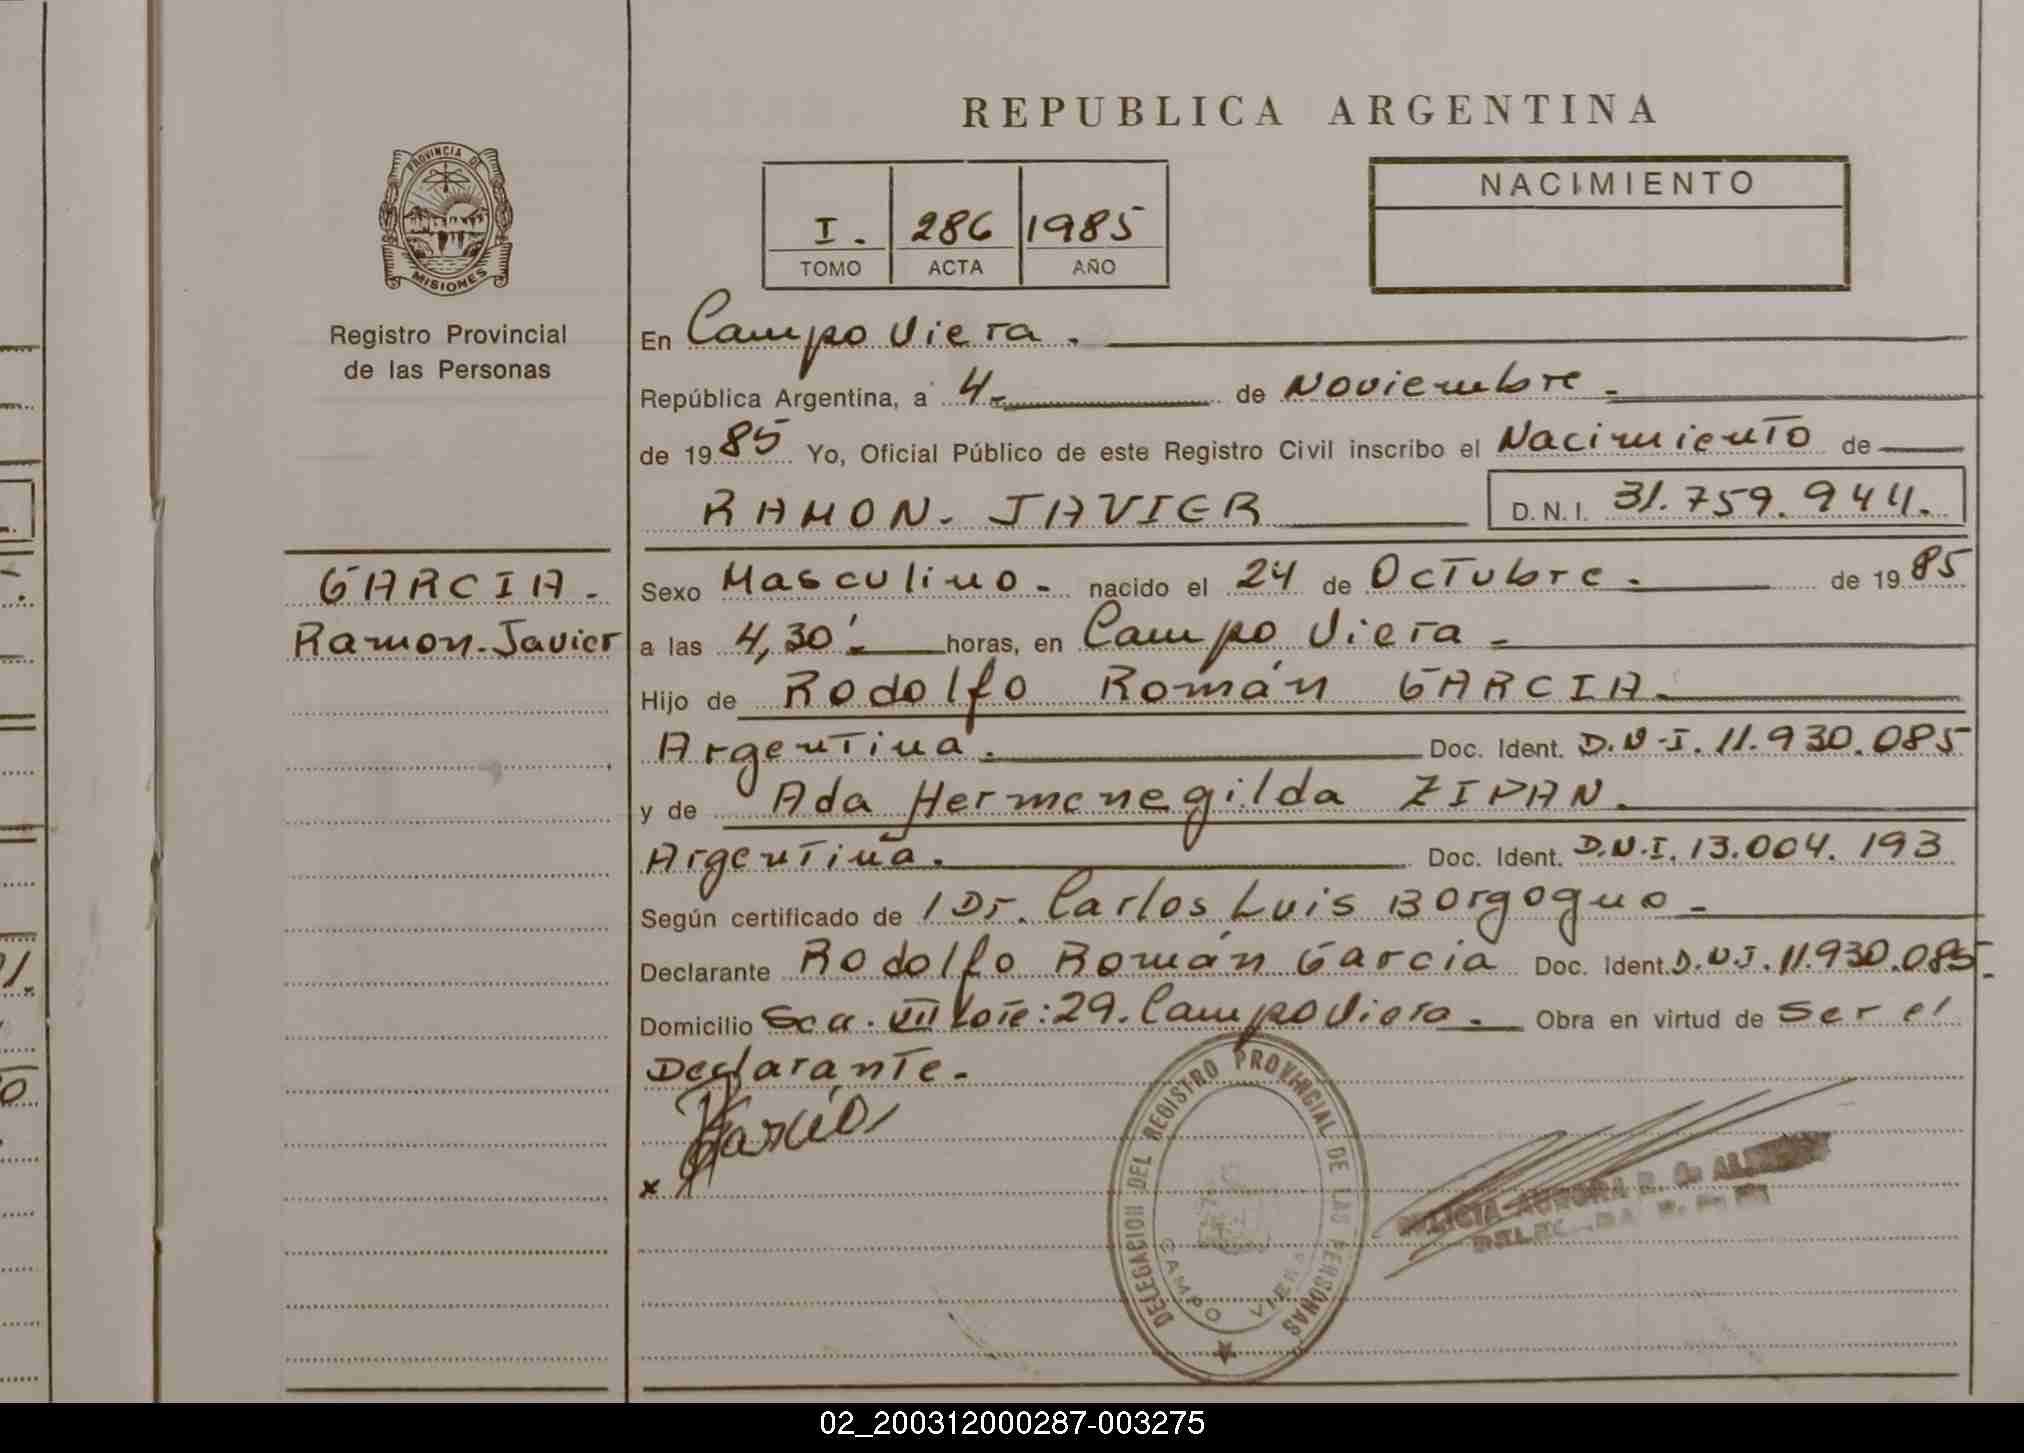 REPUBLICA ARGENTINA
PROVINCIA DE
MISIONES
Registro Provincial
de las Personas
I. 286 1985
TOMO ACTA AÑO
NACIMIENTO
En Campo Viera.
República Argentina, a 4. de Noviembre.
de 1985 Yo, Oficial Público de este Registro Civil inscribo el Nacimiento de
RAMON. JAVIER D.N.I. 31.759.944.
GARCIA.
Ramon. Javier
Sexo Masculino. nacido el 24 de Octubre. de 1985
a las 4,30'. horas, en Campo Viera.
Hijo de Rodolfo Román GARCIA.
Argentina. Doc. Ident. D.N.I. 11.930.085
y de Ada Hermenegilda ZIPAN.
Argentina. Doc. Ident. D.N.I. 13.004.193
Según certificado de / Dr. Carlos Luis Borgogno.
Declarante Rodolfo Román Garcia Doc. Ident. D.N.I. 11.930.085.
Domicilio Sca. VII Lote: 29. Campo Viera. Obra en virtud de Ser el
Declarante.
x Garcia
DELEGACION DEL REGISTRO PROVINCIAL DE LAS PERSONAS
CAMPO VIERA
AURORA R. de
02_200312000287-003275